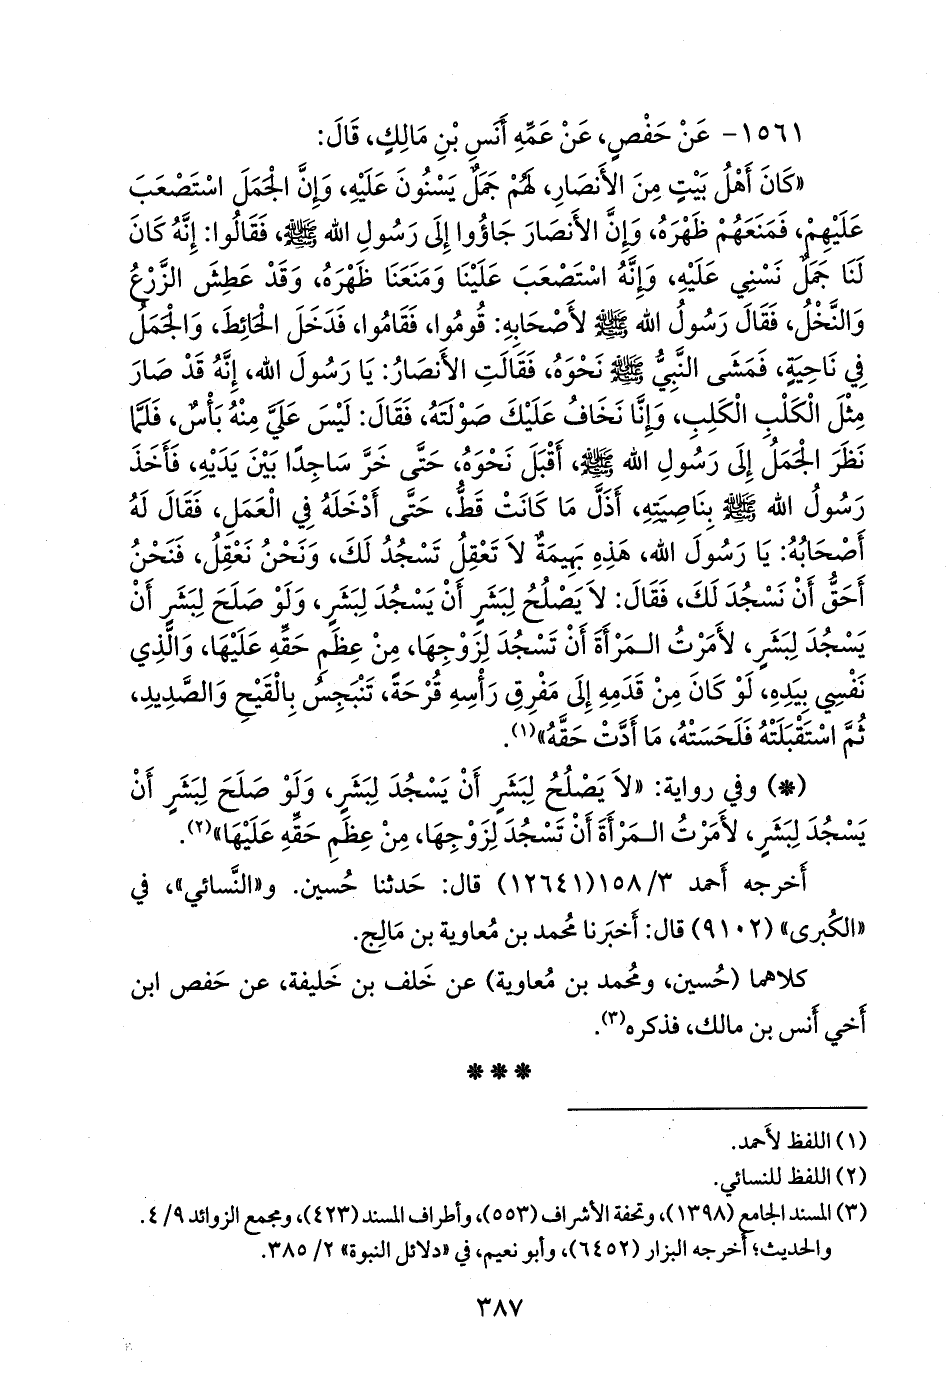 ١٥٦١- عَنْ حَفْصٍ، عَنْ عَمِّهِ أَنَسِ بْنِ مَالِكٍ، قَالَ:
«كَانَ أَهْلُ بَيْتٍ مِنَ الأَنصَارِ، لَهُمْ جَمَلٌ يَسْنُونَ عَلَيْهِ، وَإِنَّ الْجَمَلَ اسْتَصْعَبَ
عَلَيْهِمْ، فَمَنَعَهُمْ ظَهْرَهُ، وَإِنَّ الأَنصَارَ جَاؤُوا إِلَى رَسُولِ الله ﷺ، فَقَالُوا: إِنَّهُ كَانَ
لَنَا جَمَلٌ نَسْنِي عَلَيْهِ، وَإِنَّهُ اسْتَصْعَبَ عَلَيْنَا وَمَنَعَنَا ظَهْرَهُ، وَقَدْ عَطِشَ الزَّرْعُ
وَالنَّخْلُ، فَقَالَ رَسُولُ الله ﷺ لأَصْحَابِهِ: قُومُوا، فَقَامُوا، فَدَخَلَ الْحَائِطَ، وَالْجَمَلُ
فِي نَاحِيَةٍ، فَمَشَى النَّبِيُّ ﷺ نَحْوَهُ، فَقَالَتِ الأَنصَارُ: يَا رَسُولَ الله، إِنَّهُ قَدْ صَارَ
مِثْلَ الْكَلْبِ الْكَلِبِ، وَإِنَّا نَخَافُ عَلَيْكَ صَوْلَتَهُ، فَقَالَ: لَيْسَ عَلَيَّ مِنْهُ بَأْسٌ، فَلَمَّا
نَظَرَ الْجَمَلُ إِلَى رَسُولِ الله ﷺ، أَقْبَلَ نَحْوَهُ، حَتَّى خَرَّ سَاجِدًا بَيْنَ يَدَيْهِ، فَأَخَذَ
رَسُولُ الله ﷺ بِنَاصِيَتِهِ، أَذَلَّ مَا كَانَتْ قَطُّ، حَتَّى أَدْخَلَهُ فِي الْعَمَلِ، فَقَالَ لَهُ
أَصْحَابُهُ: يَا رَسُولَ الله، هَذِهِ بَهِيمَةٌ لاَ تَعْقِلُ تَسْجُدُ لَكَ، وَنَحْنُ نَعْقِلُ، فَنَحْنُ
أَحَقُّ أَنْ نَسْجُدَ لَكَ، فَقَالَ: لاَ يَصْلُحُ لِبَشَرٍ أَنْ يَسْجُدَ لِبَشَرٍ، وَلَوْ صَلَحَ لِبَشَرٍ أَنْ
يَسْجُدَ لِبَشَرٍ، لأَمَرْتُ الـمَرْأَةَ أَنْ تَسْجُدَ لِزَوْجِهَا، مِنْ عِظَمِ حَقِّهِ عَلَيْهَا، وَالَّذِي
نَفْسِي بِيَدِهِ، لَوْ كَانَ مِنْ قَدَمِهِ إِلَى مَفْرِقِ رَأْسِهِ قُرْحَةً، تَنْبَجِسُ بِالْقَيْحِ وَالصَّدِيدِ،
ثُمَّ اسْتَقْبَلَتْهُ فَلَحَسَتْهُ، مَا أَدَّتْ حَقَّهُ»(١).
(*) وفي رواية: «لاَ يَصْلُحُ لِبَشَرٍ أَنْ يَسْجُدَ لِبَشَرٍ، وَلَوْ صَلَحَ لِبَشَرٍ أَنْ
يَسْجُدَ لِبَشَرٍ، لأَمَرْتُ الـمَرْأَةَ أَنْ تَسْجُدَ لِزَوْجِهَا، مِنْ عِظَمِ حَقِّهِ عَلَيْهَا»(٢).
أَخرجه أَحمد ٣/ ١٥٨(١٢٦٤١) قال: حَدثنا حُسين. و«النَّسائي»، في
«الكُبرى» (٩١٠٢) قال: أَخبَرنا مُحمد بن مُعاوية بن مَالِج.
كلاهما (حُسين، ومُحمد بن مُعاوية) عن خَلف بن خَليفة، عن حَفص ابن
أَخي أَنس بن مالك، فذكره(٣).
***
(١) اللفظ لأَحمد.
(٢) اللفظ للنسائي.
(٣) المسند الجامع (١٣٩٨)، وتحفة الأشراف (٥٥٣)، وأطراف المسند (٤٢٣)، ومجمع الزوائد ٩/ ٤.
والحديث؛ أخرجه البزار (٦٤٥٢)، وأبو نعيم، في «دلائل النبوة» ٢/ ٣٨٥.
٣٨٧